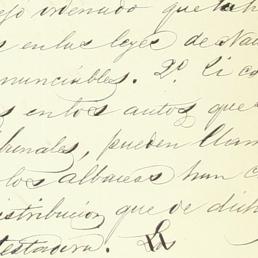 ejo ordenado que la h
s en las leyes de Nav
enunciables. 2º Si co
s en los autos, que s
ibunales, pueden llam
los albaceas han c
istribucion que de dich
testadora. La